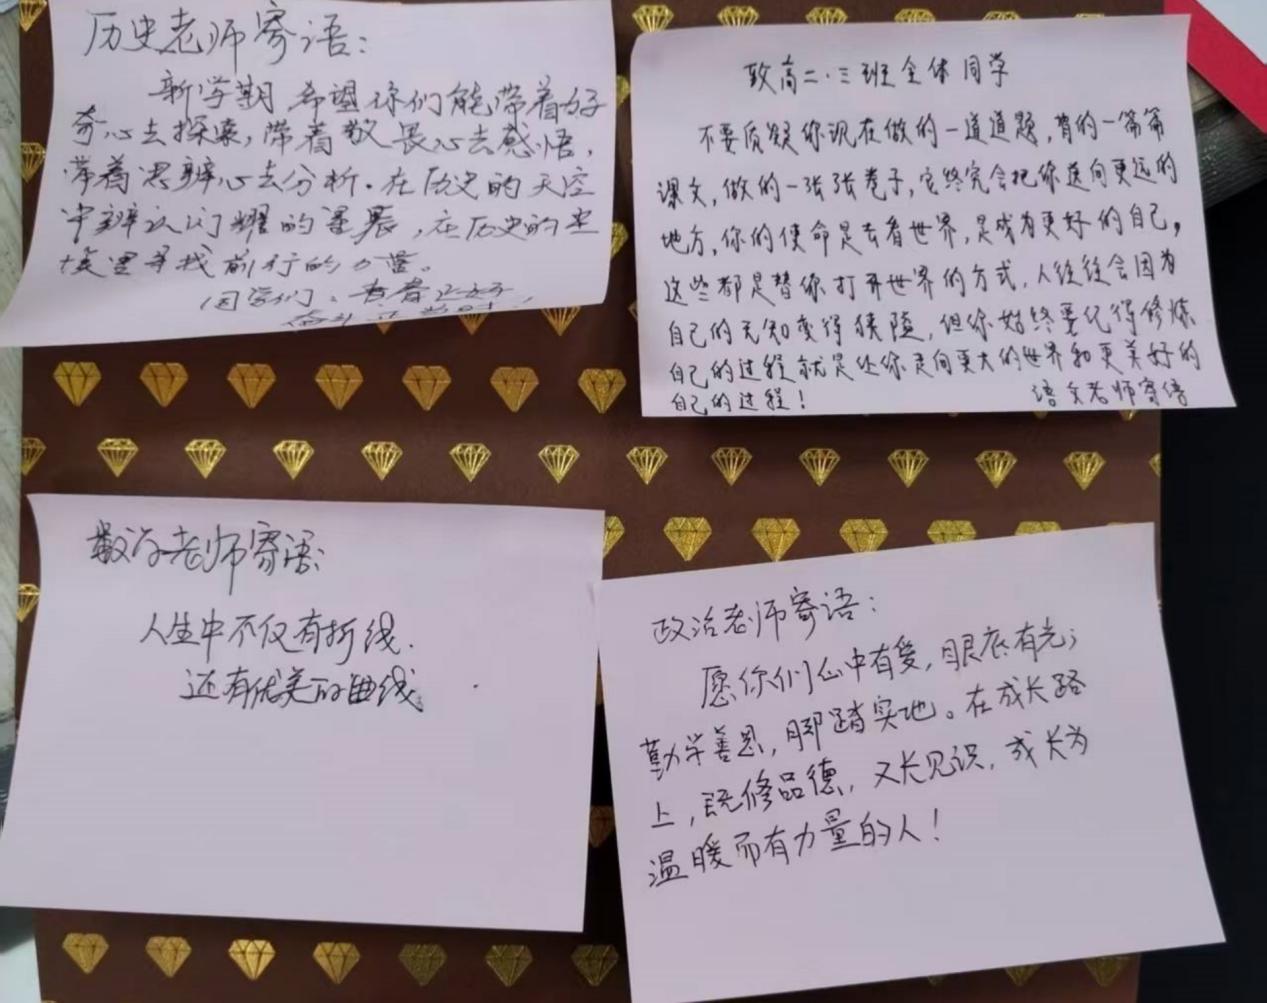 历史老师寄语：
新学期 希望你们能带着好
奇心去探索，带着敬畏心去感悟，
带着思辨心去分析。在历史的天空
中辨认闪耀的星辰，在历史的尘
埃里寻找前行的力量。
同学们、青春正好，
奋斗正当时
致高二·三班全体同学
不要质疑你现在做的一道道题，背的一篇篇
课文，做的一张张卷子，它终究会把你送向更远的
地方，你的使命是去看世界，是成为更好的自己，
这些都是替你打开世界的方式，人往往会因为
自己的无知变得狭隘，但你始终要记得修炼
自己的过程就是让你走向更大的世界和更美好的
自己的过程！
语文老师寄语
数学老师寄语：
人生中不仅有折线.
还有优美的曲线。
政治老师寄语：
愿你们心中有爱，眼底有光；
勤学善思，脚踏实地。在成长路
上，既修品德，又长见识，成长为
温暖而有力量的人！